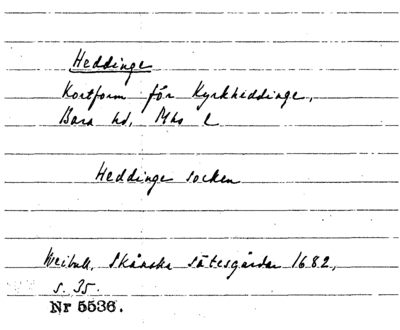 Heddinge
Kortform för Kyrkheddinge,
Bara hd, Mhs l
Heddinge socken
Weibull, Skånska sätesgårdar 1682,
s. 35.
Nr 5536.